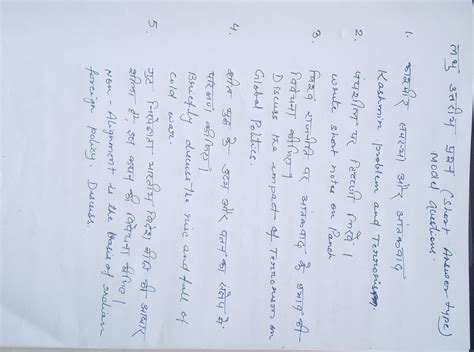 लघु उत्तरीय प्रश्न (Short Answer type)
Model Questions:
1. काश्मीर समस्या और आतंकवाद
Kashmir problem and Terrorism.
2. पंचशील पर टिप्पणी लिखें।
write short note on Panch
3. विश्व राजनीति पर आतंकवाद के प्रभाव की
विवेचना कीजिए।
Discuss the impact of Terrorism on
Global Politics.
4. शीत युद्ध के उत्थान और पतन का संक्षेप में
वर्णन कीजिए।
Briefly discuss the rise and fall of
cold war.
5. गुट निरपेक्षता भारतीय विदेश नीति की आधार
शीला है इस कथन की विवेचना कीजिए।
Non - Alignment is the basis of Indian
foreign policy. Discuss.